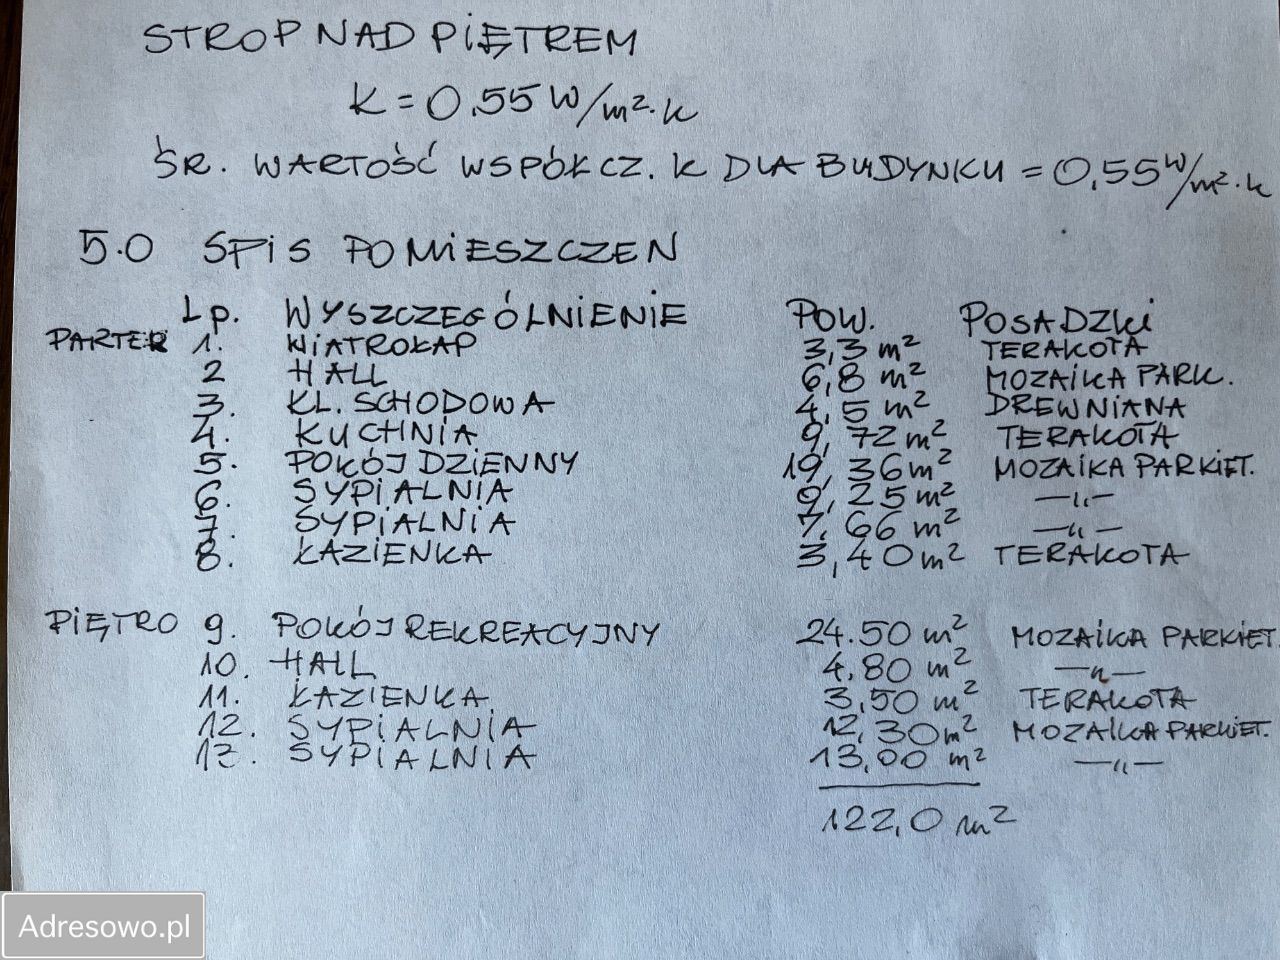 STROP NAD PIĘTREM
K = 0.55 W/m²·K
ŚR. WARTOŚĆ WSPÓŁCZ. K DLA BUDYNKU = 0,55 W/m²·K
5.0 SPIS POMIESZCZEŃ
Lp. WYSZCZEGÓLNIENIE POW. POSADZKI
PARTER 1. WIATROŁAP 3,3 m² TERAKOTA
2 HALL 6,8 m² MOZAIKA PARK.
3. KL. SCHODOWA 4,5 m² DREWNIANA
4. KUCHNIA 9,72 m² TERAKOTA
5. POKÓJ DZIENNY 19,36 m² MOZAIKA PARKIET.
6. SYPIALNIA 9,25 m² —"—
7. SYPIALNIA 7,66 m² —"—
8. ŁAZIENKA 3,40 m² TERAKOTA
PIĘTRO 9. POKÓJ REKREACYJNY 24.50 m² MOZAIKA PARKIET.
10. HALL 4,80 m² —"—
11. ŁAZIENKA 3,50 m² TERAKOTA
12. SYPIALNIA 12,30 m² MOZAIKA PARKIET.
13. SYPIALNIA 13,00 m² —"—
122,0 m²
Adresowo.pl